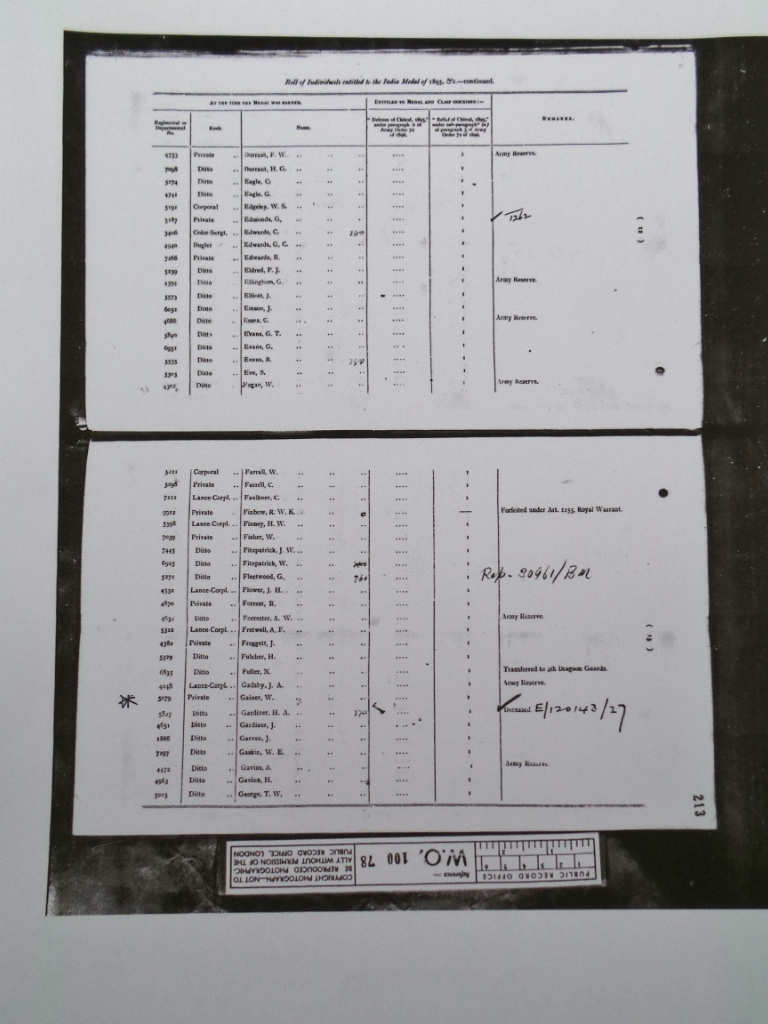 Roll of Individuals entitled to the India Medal of 1895, &c.—continued.
At the time the Medal was earned. Entitled to Medal and Clasp inscribed:—
Regimental or Departmental No. Rank. Name. "Defence of Chitral, 1895," under paragraph 2 of Army Order of 1896. "Relief of Chitral, 1895," under sub-paragraph of paragraph 3 of Army Order of 1896. Remarks.
4733 Private .. Durrant, F. W. .. .. .. .... Army Reserve.
7098 Ditto .. Durrant, H. G. .. .. .. ....
5174 Ditto .. Eagle, C. .. .. .. ....
4741 Ditto .. Eagle, G. .. .. .. ....
5191 Corporal .. Edgeley, W. S. .. .. .. ....
5187 Private .. Edmonds, G. .. .. .. .... 1262
3406 Color-Sergt. .. Edwards, C. .. .. ....
4940 Bugler .. Edwards, G. C. .. .. .. ....
7266 Private .. Edwards, R. .. .. .. ....
5239 Ditto .. Eldred, P. J. .. .. .. ....
Ditto .. Ellingham, G. .. .. .. .... Army Reserve.
3573 Ditto .. Elliott, J. .. .. .. ....
6032 Ditto .. J. .. .. .. ....
4688 Ditto .. Essex, G. .. .. .. .... Army Reserve.
5840 Ditto .. Evans, G. T. .. .. .. ....
6931 Ditto .. Evans, G. .. .. .. ....
3535 Ditto .. Evans, R. .. .. ....
5303 Ditto .. Eve, S. .. .. .. ....
Ditto .. Fagan, W. .. .. .. .... Army Reserve.
( 12 )
5121 Corporal .. Farrall, W. .. .. .. ....
5296 Private .. Farrell, C. .. .. .. ....
7212 Lance-Corpl. .. Faulkner, C. .. .. .. ....
5922 Private .. Finbow, R. W. K. .. .. .... — Forfeited under Art. 1255, Royal Warrant.
5398 Lance-Corpl. .. Finney, H. W. .. .. .. ....
7039 Private .. Fisher, W. .. .. .. ....
7445 Ditto .. Fitzpatrick, J. W. .. .. .. ....
6925 Ditto .. Fitzpatrick, W. .. .. ....
5271 Ditto .. Fleetwood, G. .. .. 760 .... Rep. 80961/BM
4532 Lance-Corpl. .. Flower, J. H. .. .. .. ....
4870 Private .. Forrest, R. .. .. .. ....
Ditto .. Forrester, A. W. .. .. .. .... Army Reserve.
5322 Lance-Corpl. .. Fretwell, A. F. .. .. .. ....
4382 Private .. Froggett, J. .. .. .. ....
5329 Ditto .. Fulcher, H. .. .. .. ....
6835 Ditto .. Fuller, N. .. .. .. .... Transferred to 4th Dragoon Guards.
4248 Lance-Corpl. .. Gadsby, J. A. .. .. .. .... Army Reserve.
5079 Private .. Gaiser, W. .. .. .. ....
5827 Ditto .. Gardiner, H. A. .. .. .... Deceased E/120143/27
4651 Ditto .. Gardiner, J. .. .. .. ....
1866 Ditto .. Garron, J. .. .. .. ....
7297 Ditto .. Gaskin, W. E. .. .. .. ....
4472 Ditto .. Gavins, A. .. .. .. .... Army Reserve.
4963 Ditto .. Gavins, H. .. .. .. ....
5015 Ditto .. George, T. W. .. .. .. ....
( 13 )
213
PUBLIC RECORD OFFICE
1 2 3 4 5 6
1 2
Reference :—
W.O. 100 78
COPYRIGHT PHOTOGRAPH—NOT TO
BE REPRODUCED PHOTOGRAPHIC-
ALLY WITHOUT PERMISSION OF THE
PUBLIC RECORD OFFICE, LONDON